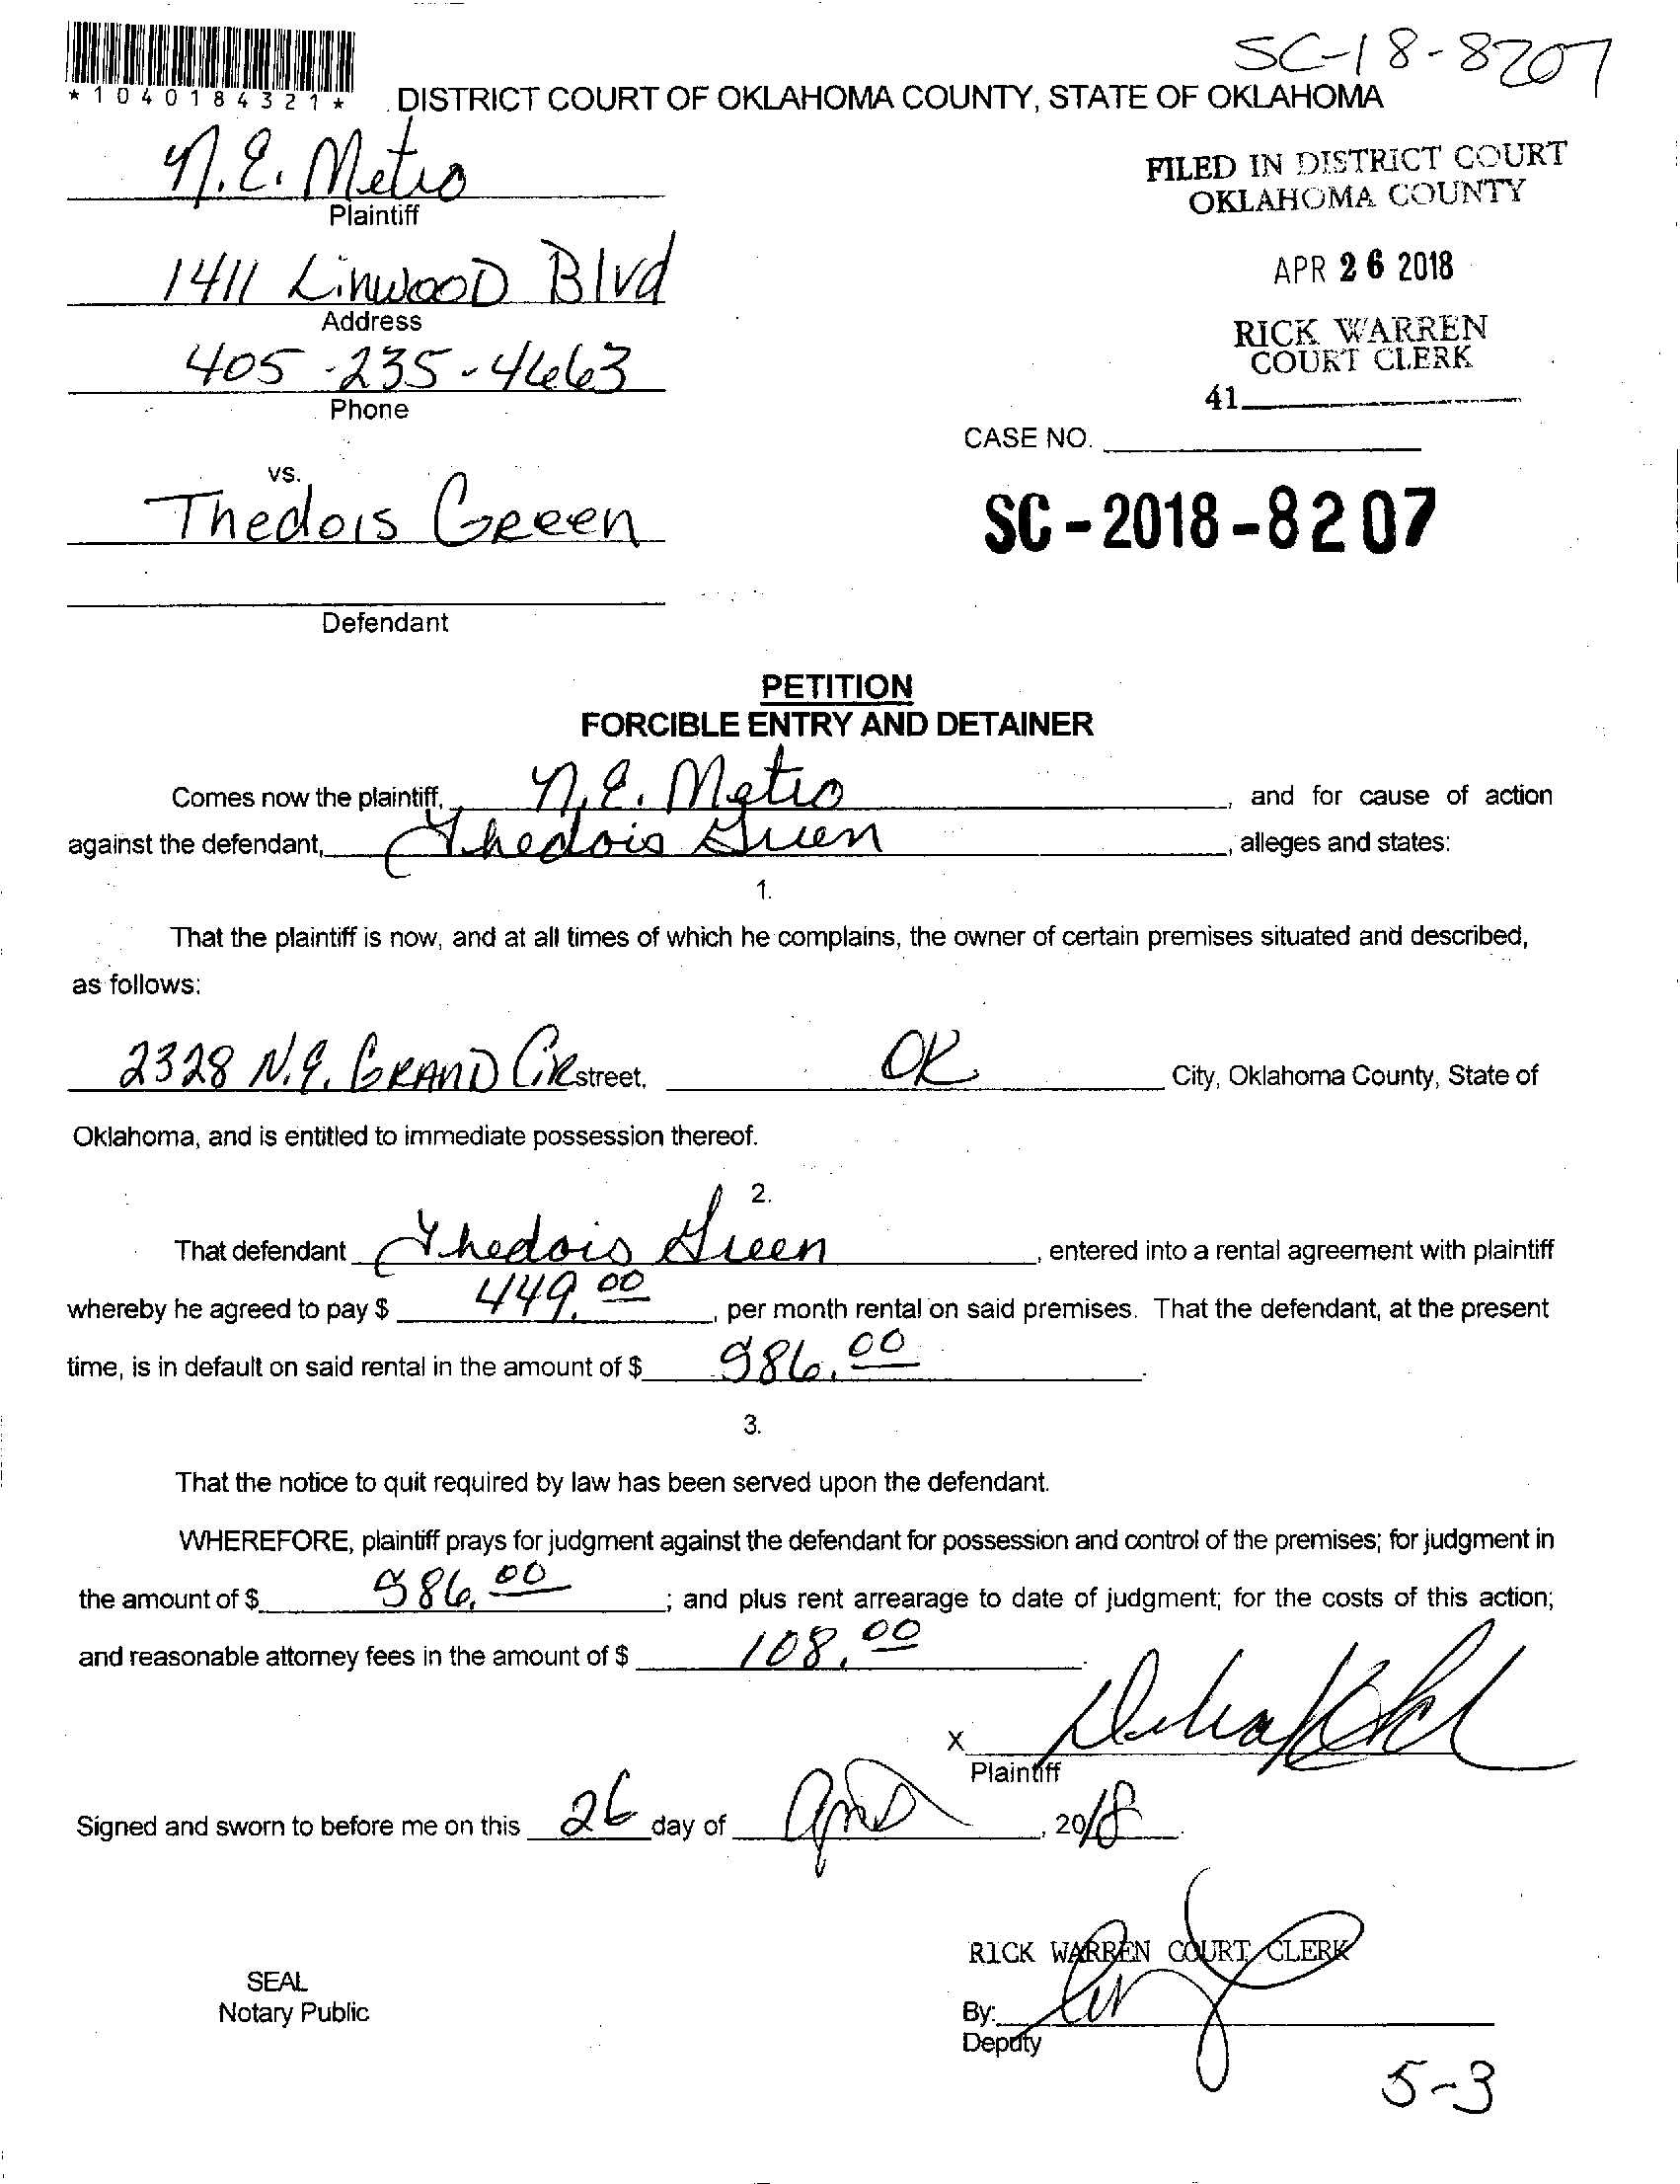 SC-18-8207
*1040184321*
DISTRICT COURT OF OKLAHOMA COUNTY, STATE OF OKLAHOMA
N.E. Metro
Plaintiff
FILED IN DISTRICT COURT
OKLAHOMA COUNTY
1411 LinwooD Blvd
Address
APR 26 2018
405-235-4663
Phone
RICK WARREN
COURT CLERK
41
CASE NO.
vs.
Thedois Green
SC-2018-8207
Defendant
PETITION
FORCIBLE ENTRY AND DETAINER
Comes now the plaintiff, N.E. Metro, and for cause of action
against the defendant, Thedois Green, alleges and states:
1.
That the plaintiff is now, and at all times of which he complains, the owner of certain premises situated and described,
as follows:
2328 N.E. GRAND CiR street, OK City, Oklahoma County, State of
Oklahoma, and is entitled to immediate possession thereof.
2.
That defendant Thedois Green, entered into a rental agreement with plaintiff
whereby he agreed to pay $ 449.00, per month rental on said premises. That the defendant, at the present
time, is in default on said rental in the amount of $ 986.00.
3.
That the notice to quit required by law has been served upon the defendant.
WHEREFORE, plaintiff prays for judgment against the defendant for possession and control of the premises; for judgment in
the amount of $ 986.00; and plus rent arrearage to date of judgment; for the costs of this action;
and reasonable attorney fees in the amount of $ 108.00.
X
Plaintiff
Signed and sworn to before me on this 26 day of April, 2018.
RICK WARREN COURT CLERK
SEAL
Notary Public
By:
Deputy
5-3